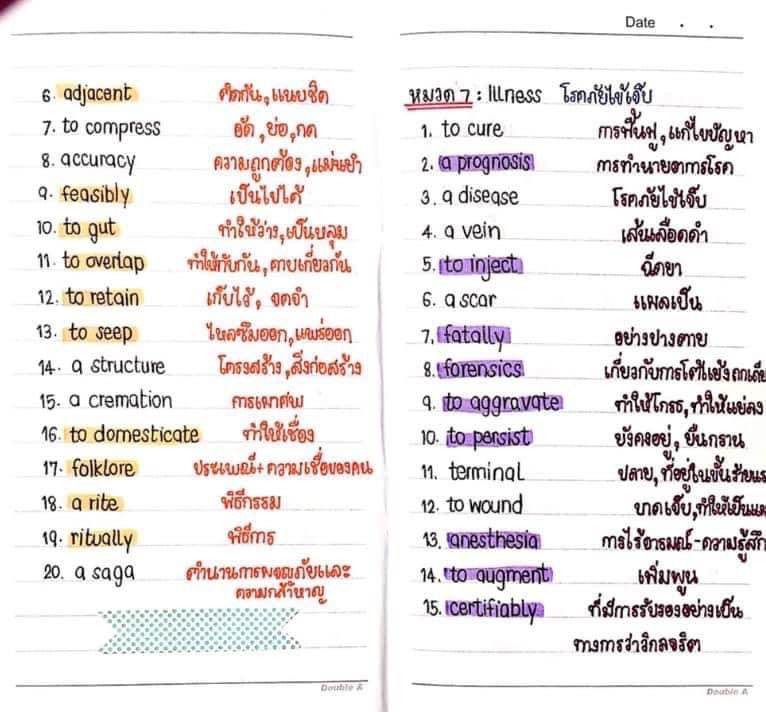 6. adjacent ติดกัน, แนบชิด
7. to compress อัด, ย่อ, กด
8. accuracy ความถูกต้อง, แม่นยำ
9. feasibly เป็นไปได้
10. to gut ทำให้ว่าง, เป็นหลุม
11. to overlap ทำให้ทับกัน, คาบเกี่ยวกัน
12. to retain เก็บไว้, จดจำ
13. to seep ไหลซึมออก, แพร่ออก
14. a structure โครงสร้าง, สิ่งก่อสร้าง
15. a cremation การเผาศพ
16. to domesticate ทำให้เชื่อง
17. folklore ประเพณี+ความเชื่อของคน
18. a rite พิธีกรรม
19. ritually พิธีการ
20. a saga ตำนานการผจญภัยและ
ความกล้าหาญ
Double A
Date . .
หมวด 7 : Illness โรคภัยไข้เจ็บ
1. to cure การฟื้นฟู, แก้ไขปัญหา
2. a prognosis การทำนายอาการโรค
3. a disease โรคภัยไข้เจ็บ
4. a vein เส้นเลือดดำ
5. to inject ฉีดยา
6. a scar แผลเป็น
7. fatally อย่างปางตาย
8. forensics เกี่ยวกับการโต้แย้ง
9. to aggravate ทำให้โกรธ, ทำให้แย่ลง
10. to persist ยังคงอยู่, ยืนกราน
11. terminal ปลาย, ที่อยู่ในขั้น
12. to wound บาดเจ็บ, ทำให้เป็น
13. anesthesia การไร้อารมณ์-ความรู้สึก
14. to augment เพิ่มพูน
15. certifiably ที่มีการรับรองอย่างเป็น
ทางการว่าวิกลจริต
Double A